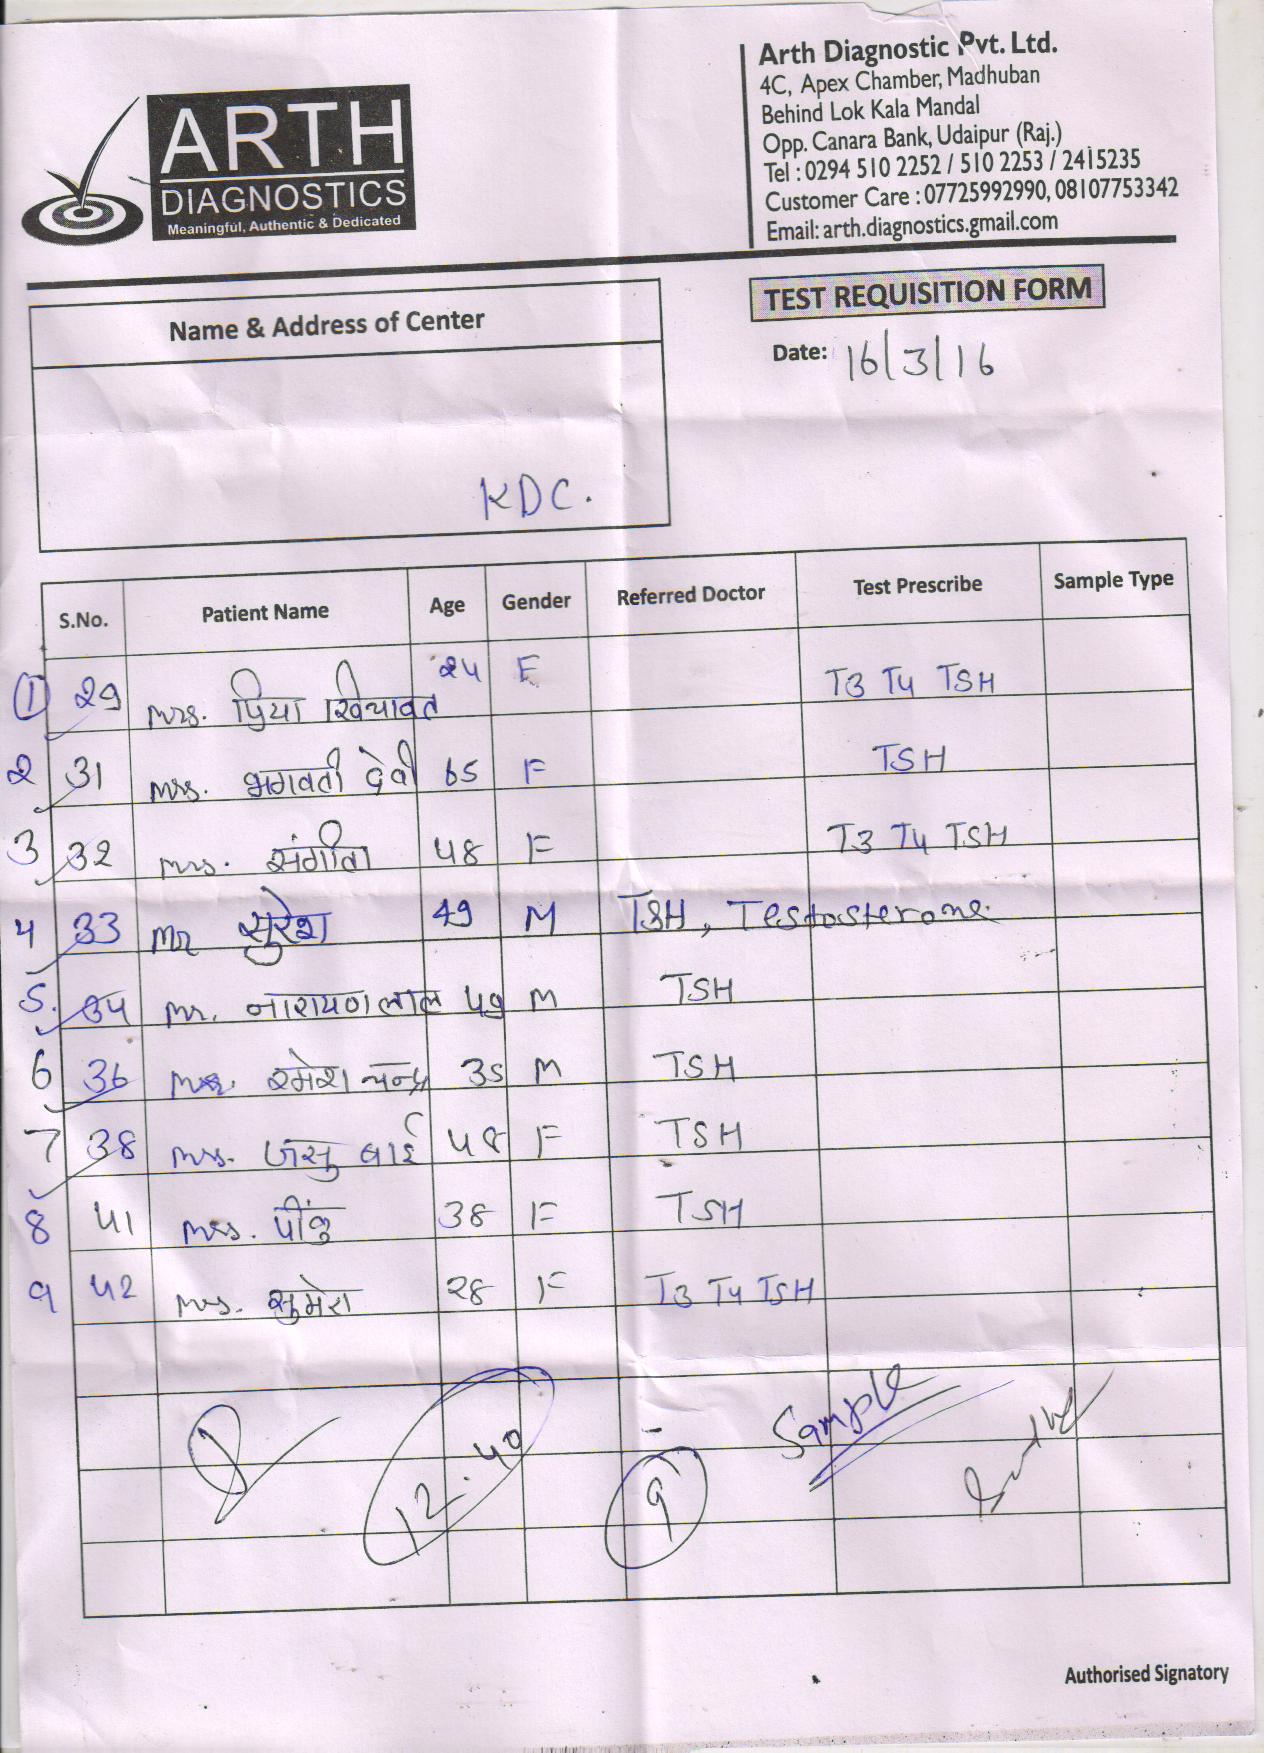 ARTH
DIAGNOSTICS
Meaningful, Authentic & Dedicated
Arth Diagnostic Pvt. Ltd.
4C, Apex Chamber, Madhuban
Behind Lok Kala Mandal
Opp. Canara Bank, Udaipur (Raj.)
Tel : 0294 510 2252 / 510 2253 / 2415235
Customer Care : 07725992990, 08107753342
Email: arth.diagnostics.gmail.com
Name & Address of Center
KDC.
TEST REQUISITION FORM
Date: 16/3/16
S.No. Patient Name Age Gender Referred Doctor Test Prescribe Sample Type
1 29 Mrs. प्रिया खियावत 24 F T3 T4 TSH
2 31 Mrs. भगवती देवी 65 F TSH
3 32 Mrs. संगीता 48 F T3 T4 TSH
4 33 Mr सुरेश 49 M TSH, Testosterone
5. 34 Mr. नारायण लाल 49 M TSH
6 36 रमेश चन्द्र 35 M TSH
7 38 Mrs. जसु बाई 48 F TSH
8 41 Mrs. पींकु 38 F TSH
9 42 Mrs. सुमेरा 28 F T3 T4 TSH
12.40 9 Sample
Authorised Signatory